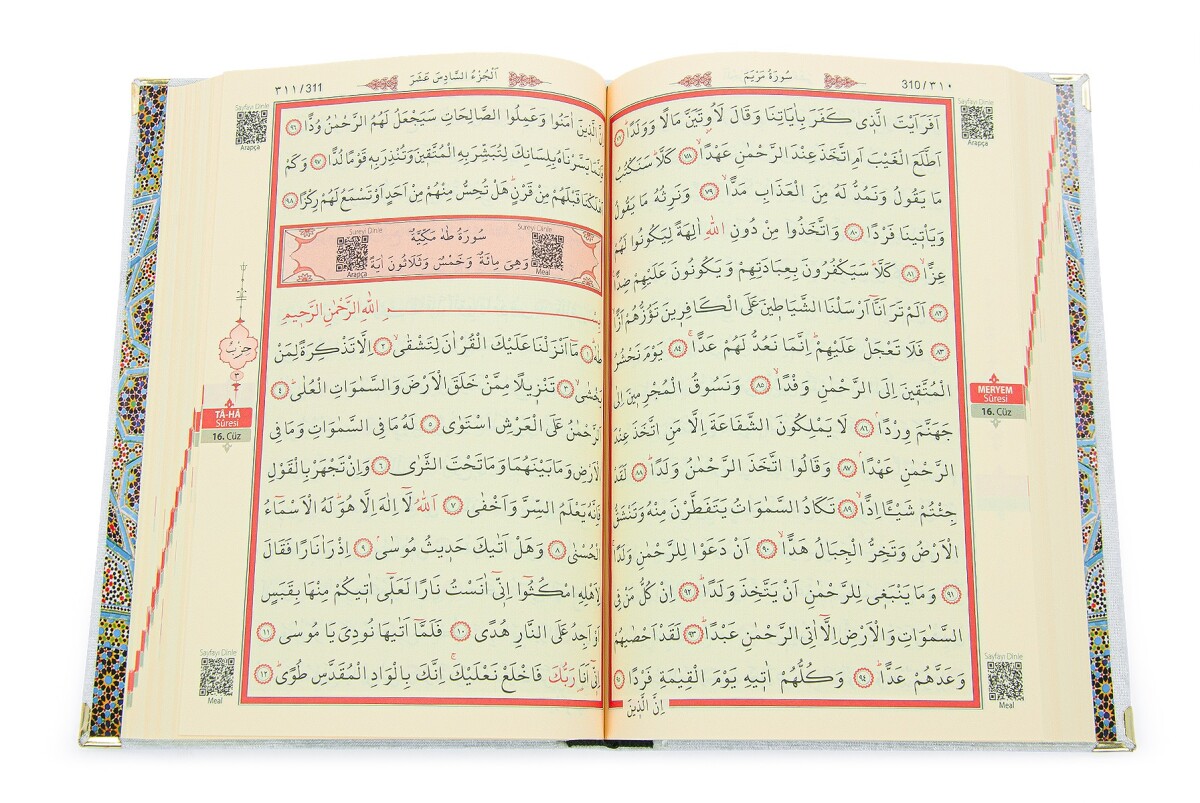 سُورَةُ مَرْيَمَ
310/٣١٠
اَفَرَاَيْتَ الَّذ۪ي كَفَرَ بِاٰيَاتِنَا وَقَالَ لَاُو۫تَيَنَّ مَالًا وَوَلَدًاۜ ﴿٧٧﴾
اَطَّلَعَ الْغَيْبَ اَمِ اتَّخَذَ عِنْدَ الرَّحْمٰنِ عَهْدًاۙ ﴿٧٨﴾ كَلَّاۜ سَنَكْتُبُ
مَا يَقُولُ وَنَمُدُّ لَهُ مِنَ الْعَذَابِ مَدًّاۙ ﴿٧٩﴾ وَنَرِثُهُ مَا يَقُولُ
وَيَأْت۪ينَا فَرْدًا ﴿٨٠﴾ وَاتَّخَذُوا مِنْ دُونِ اللّٰهِ اٰلِهَةً لِيَكُونُوا لَهُمْ
عِزًّاۙ ﴿٨١﴾ كَلَّاۜ سَيَكْفُرُونَ بِعِبَادَتِهِمْ وَيَكُونُونَ عَلَيْهِمْ ضِدًّا۟
﴿٨٢﴾ اَلَمْ تَرَ اَنَّٓا اَرْسَلْنَا الشَّيَاط۪ينَ عَلَى الْكَافِر۪ينَ تَؤُزُّهُمْ اَزًّاۙ
﴿٨٣﴾ فَلَا تَعْجَلْ عَلَيْهِمْۜ اِنَّمَا نَعُدُّ لَهُمْ عَدًّاۚ ﴿٨٤﴾ يَوْمَ نَحْشُرُ
الْمُتَّق۪ينَ اِلَى الرَّحْمٰنِ وَفْدًاۙ ﴿٨٥﴾ وَنَسُوقُ الْمُجْرِم۪ينَ اِلٰى
جَهَنَّمَ وِرْدًاۢ ﴿٨٦﴾ لَا يَمْلِكُونَ الشَّفَاعَةَ اِلَّا مَنِ اتَّخَذَ عِنْدَ
الرَّحْمٰنِ عَهْدًاۢ ﴿٨٧﴾ وَقَالُوا اتَّخَذَ الرَّحْمٰنُ وَلَدًاۜ ﴿٨٨﴾ لَقَدْ
جِئْتُمْ شَيْـًٔا اِدًّاۙ ﴿٨٩﴾ تَكَادُ السَّمٰوَاتُ يَتَفَطَّرْنَ مِنْهُ وَتَنْشَقُّ
الْاَرْضُ وَتَخِرُّ الْجِبَالُ هَدًّاۙ ﴿٩٠﴾ اَنْ دَعَوْا لِلرَّحْمٰنِ وَلَدًاۚ
﴿٩١﴾ وَمَا يَنْبَغ۪ي لِلرَّحْمٰنِ اَنْ يَتَّخِذَ وَلَدًاۜ ﴿٩٢﴾ اِنْ كُلُّ مَنْ فِي
السَّمٰوَاتِ وَالْاَرْضِ اِلَّٓا اٰتِي الرَّحْمٰنِ عَبْدًاۜ ﴿٩٣﴾ لَقَدْ اَحْصٰيهُمْ
وَعَدَّهُمْ عَدًّاۜ ﴿٩٤﴾ وَكُلُّهُمْ اٰت۪يهِ يَوْمَ الْقِيٰمَةِ فَرْدًا ﴿٩٥﴾
اِنَّ الَّذ۪ينَ
Sayfayı Dinle
Arapça
MERYEM
Sûresi
16. Cüz
Sayfayı Dinle
Meal
اَلْجُزْءُ السَّادِسَ عَشَرَ
٣١١/311
اِنَّ الَّذ۪ينَ اٰمَنُوا وَعَمِلُوا الصَّالِحَاتِ سَيَجْعَلُ لَهُمُ الرَّحْمٰنُ وُدًّا ﴿٩٦﴾
فَاِنَّمَا يَسَّرْنَاهُ بِلِسَانِكَ لِتُبَشِّرَ بِهِ الْمُتَّق۪ينَ وَتُنْذِرَ بِه۪ قَوْمًا لُدًّا ﴿٩٧﴾ وَكَمْ
اَهْلَكْنَا قَبْلَهُمْ مِنْ قَرْنٍۜ هَلْ تُحِسُّ مِنْهُمْ مِنْ اَحَدٍ اَوْ تَسْمَعُ لَهُمْ رِكْزًا ﴿٩٨﴾
سُورَةُ طٰهٰ مَكِّيَّةٌ
وَهِيَ مِائَةٌ وَخَمْسٌ وَثَلَاثُونَ اٰيَةً
Sureyi Dinle
Meal
Sureyi Dinle
Arapça
بِسْمِ اللّٰهِ الرَّحْمٰنِ الرَّح۪يمِ
طٰهٰۜ ﴿١﴾ مَٓا اَنْزَلْنَا عَلَيْكَ الْقُرْاٰنَ لِتَشْقٰىۙ ﴿٢﴾ اِلَّا تَذْكِرَةً لِمَنْ
يَخْشٰىۙ ﴿٣﴾ تَنْز۪يلًا مِمَّنْ خَلَقَ الْاَرْضَ وَالسَّمٰوَاتِ الْعُلٰىۜ ﴿٤﴾
اَلرَّحْمٰنُ عَلَى الْعَرْشِ اسْتَوٰى ﴿٥﴾ لَهُ مَا فِي السَّمٰوَاتِ وَمَا فِي
الْاَرْضِ وَمَا بَيْنَهُمَا وَمَا تَحْتَ الثَّرٰى ﴿٦﴾ وَاِنْ تَجْهَرْ بِالْقَوْلِ
فَاِنَّهُ يَعْلَمُ السِّرَّ وَاَخْفٰى ﴿٧﴾ اَللّٰهُ لَٓا اِلٰهَ اِلَّا هُوَۜ لَهُ الْاَسْمَٓاءُ
الْحُسْنٰى ﴿٨﴾ وَهَلْ اَتٰيكَ حَد۪يثُ مُوسٰىۢ ﴿٩﴾ اِذْ رَاٰ نَارًا فَقَالَ
لِاَهْلِهِ امْكُثُٓوا اِنّ۪ٓي اٰنَسْتُ نَارًا لَعَلّ۪ٓي اٰت۪يكُمْ مِنْهَا بِقَبَسٍ
اَوْ اَجِدُ عَلَى النَّارِ هُدًى ﴿١٠﴾ فَلَمَّٓا اَتٰيهَا نُودِيَ يَا مُوسٰى ﴿١١﴾
اِنّ۪ٓي اَنَا۬ رَبُّكَ فَاخْلَعْ نَعْلَيْكَۚ اِنَّكَ بِالْوَادِ الْمُقَدَّسِ طُوًىۜ ﴿١٢﴾
Sayfayı Dinle
Arapça
حِزْب
٣
TÂ-HÂ
Sûresi
16. Cüz
Sayfayı Dinle
Meal